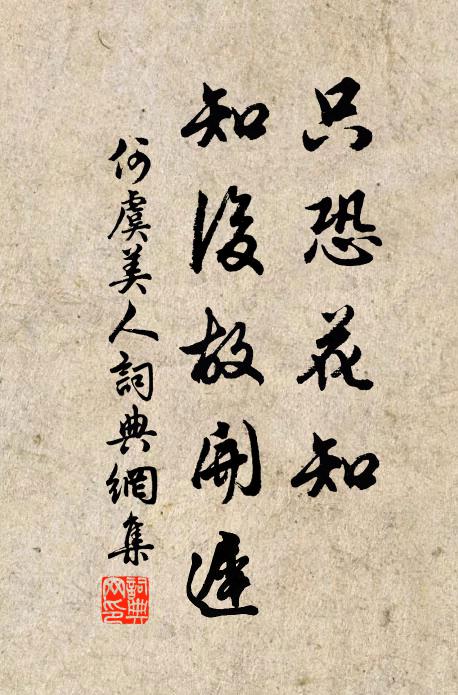 只恐花知
知後故開遲
何虞美人詞典網集
詞典網印